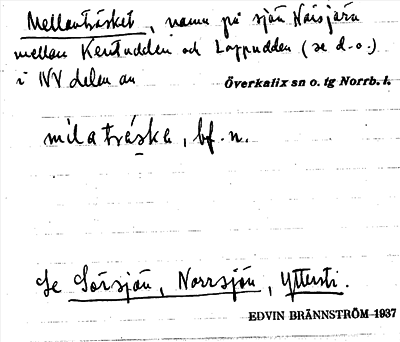 Mellanträsket, namn på sjön Naisjärv
mellan Kentudden och Lappudden (se d.o.)
i NV delen av
Överkalix sn o. tg Norrb. l.
milaträska, bf. n.
Se Sörsjön, Norrsjön, Ytterti.
EDVIN BRÄNNSTRÖM 1937